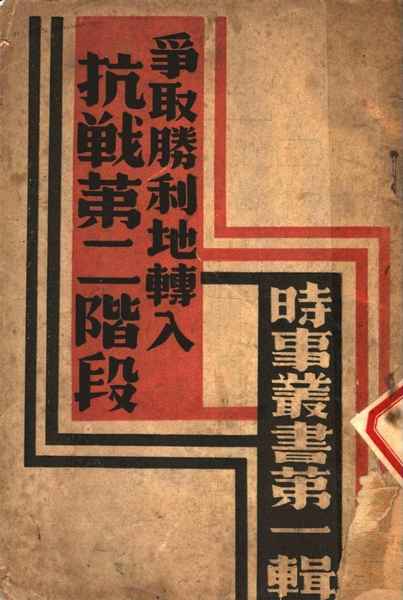 爭取勝利地轉入
抗戰第二階段
時事叢書第一輯